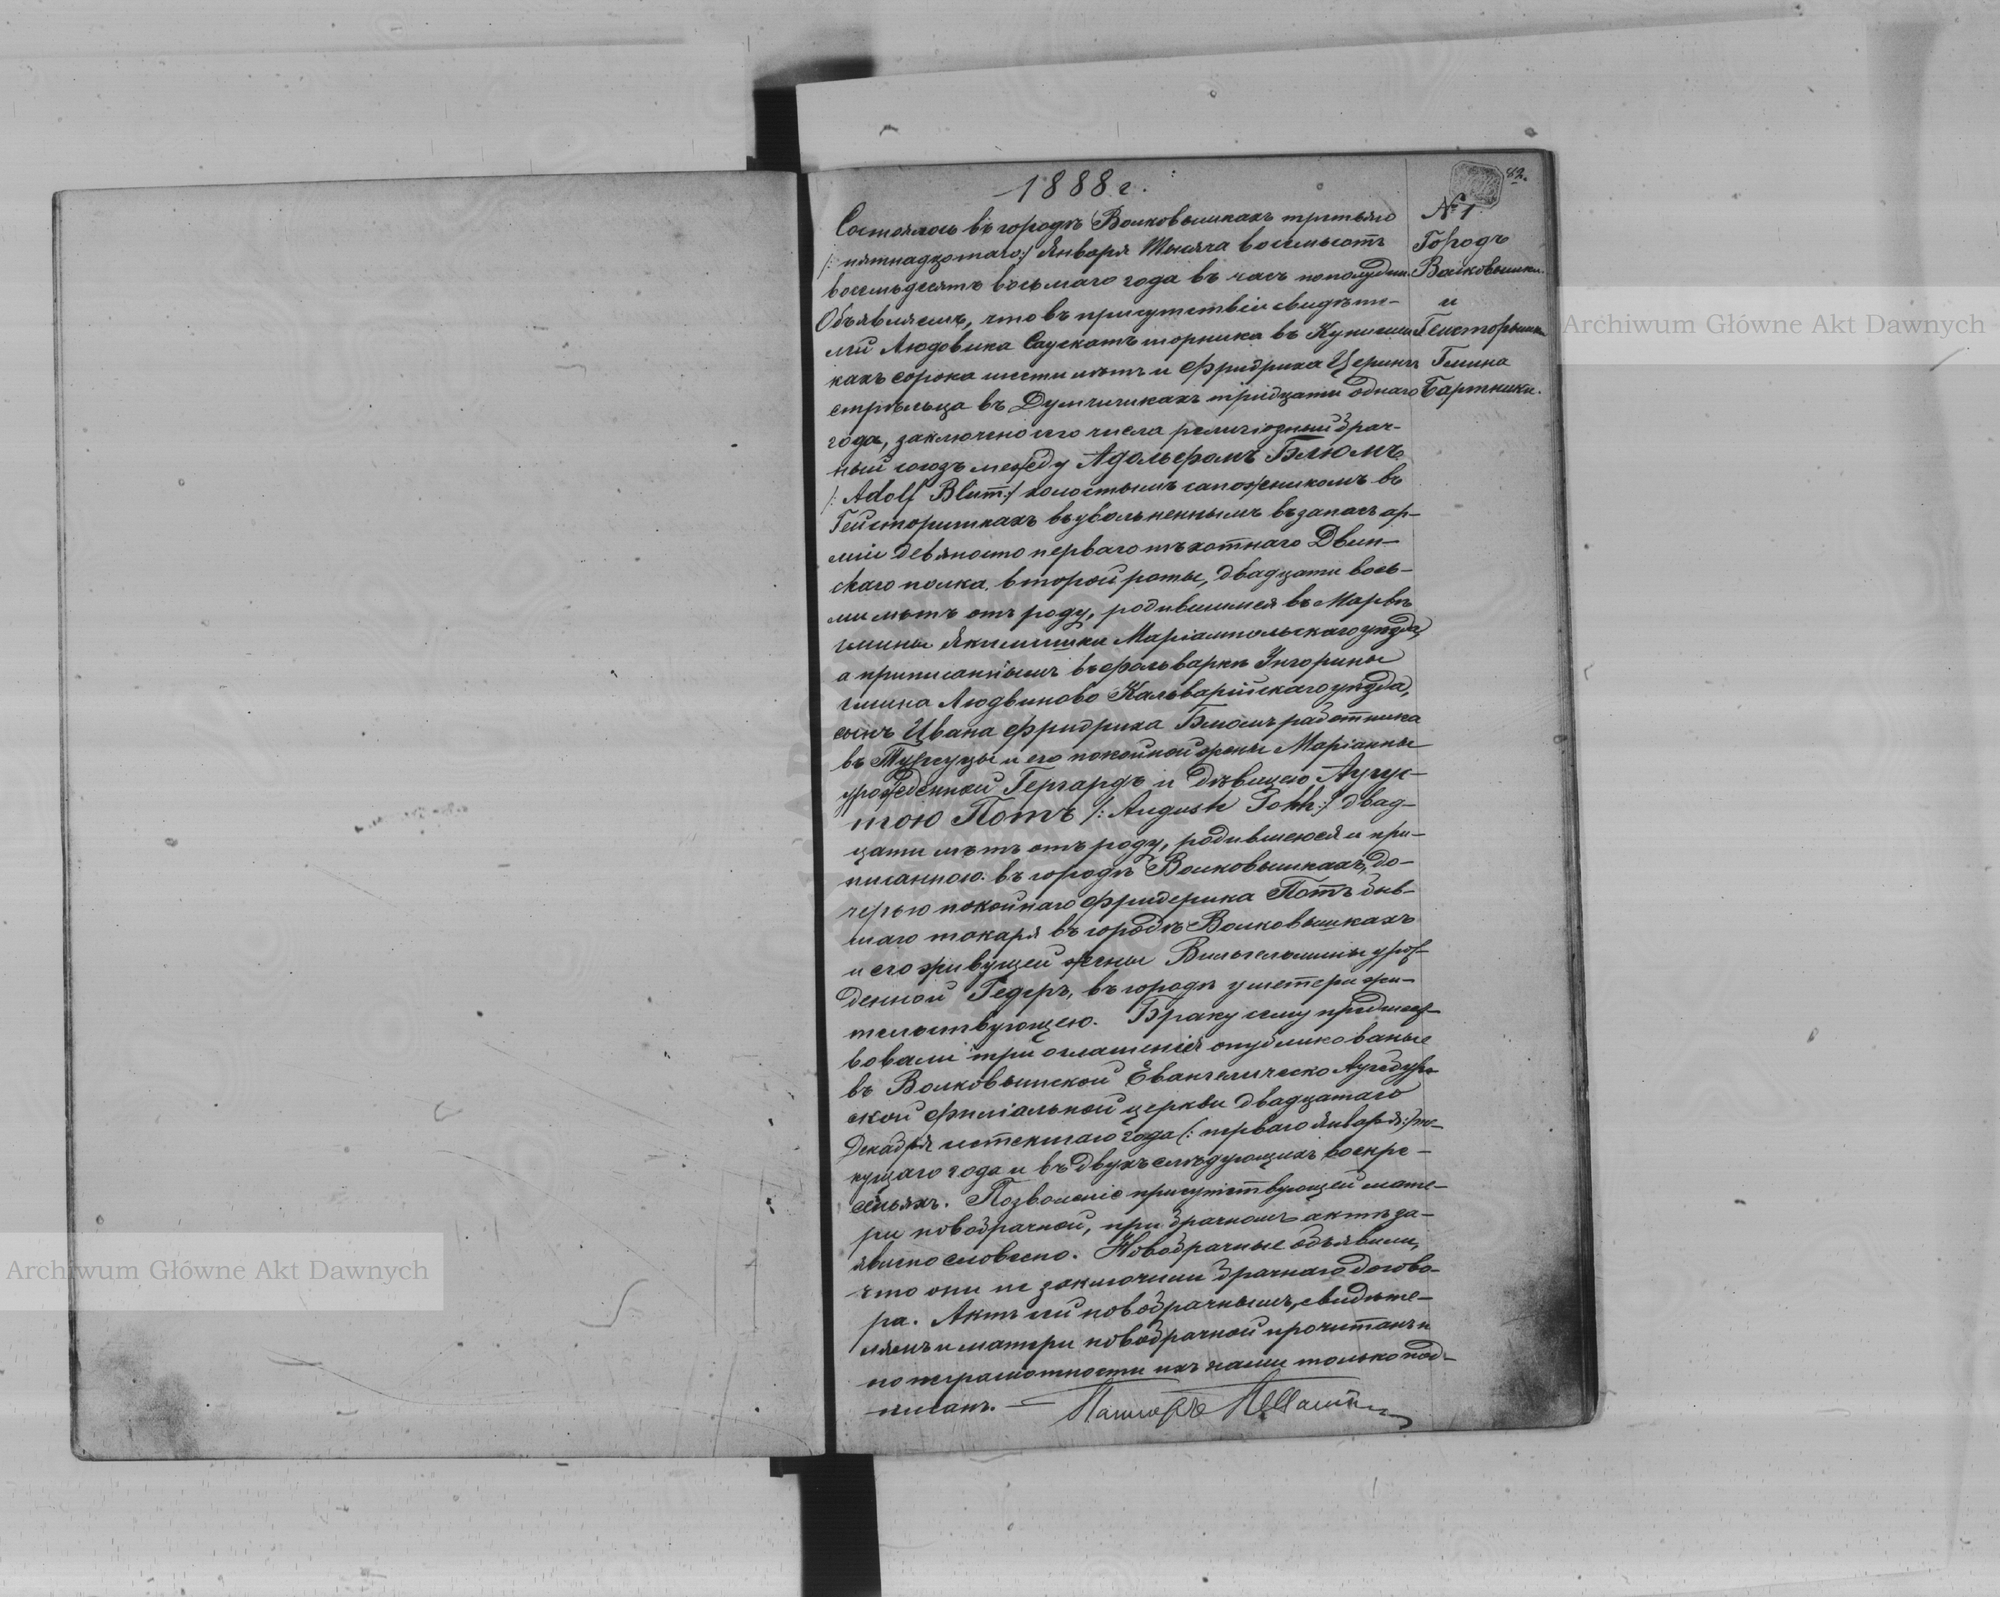 1888 г.
82.
№ 1
Городъ
Волковышки
и
Гейсторышки
Гмина
Бартники.
Состоялось въ городѣ Волковышкахъ третьяго
/: пятнадцатаго :/ Января тысяча восемьсотъ
восемьдесятъ восьмаго года въ часъ пополудни.
Объявляемъ, что въ присутствіи свидѣте-
лей Людовика Саускатъ шорника въ
кахъ сорока шести лѣтъ и Фридриха Церинъ
стрѣльца въ тридцати однаго
года, заключено сего числа религіозный брач-
ный союзъ между Адольфомъ Блюмъ
/: Adolf Blum :/ холостымъ сапожникомъ въ
Гейсторишкахъ въ увольненнымъ въ запасъ ар-
міи девяносто перваго пѣхотнаго Двин-
скаго полка второй роты, двадцати вось-
ми лѣтъ отъ роду, родившимся въ Марвѣ
гмины Якимишки Маріампольскаго уѣзда,
а приписаннымъ въ фольварке
гмина Людвиново Кальварійскаго уѣзда,
сынъ Ивана Фридриха Блюмъ работника
въ и его покойной жены Маріанны
урожденной Гергардъ и дѣвицею Аугу-
стою Потъ /: Auguste Pohh :/ двад-
цати лѣтъ отъ роду, родившеюся и при-
писанною въ городѣ Волковышкахъ, до-
черью покойнаго Фридерика Потъ быв-
шаго токаря въ городѣ Волковышкахъ
и его живущей жены Вильгельмины урож-
денной Гедеръ, въ городѣ у матери жи-
тельствующею. Браку сему предшест-
вовали три оглашенія опубликованые
въ Волковышской Евангелическо Аугсбург-
ской филіальной церкви двадцатаго
Декабря истекшаго года /: перваго января :/ те-
кущаго года и въ двухъ слѣдующихъ воскре-
сеньяхъ. Позволеніе присутствующей мате-
ри новобрачной, при брачномъ актѣ за-
явлено словесно. Новобрачные объявили,
что они не заключили брачнаго догово-
ра. Актъ сей новобрачнымъ, свидѣте-
лямъ и матери новобрачной прочитанъ и
по неграмотности ихъ нами только под-
писанъ. —
Пасторъ
Archiwum Główne Akt Dawnych
Archiwum Główne Akt Dawnych